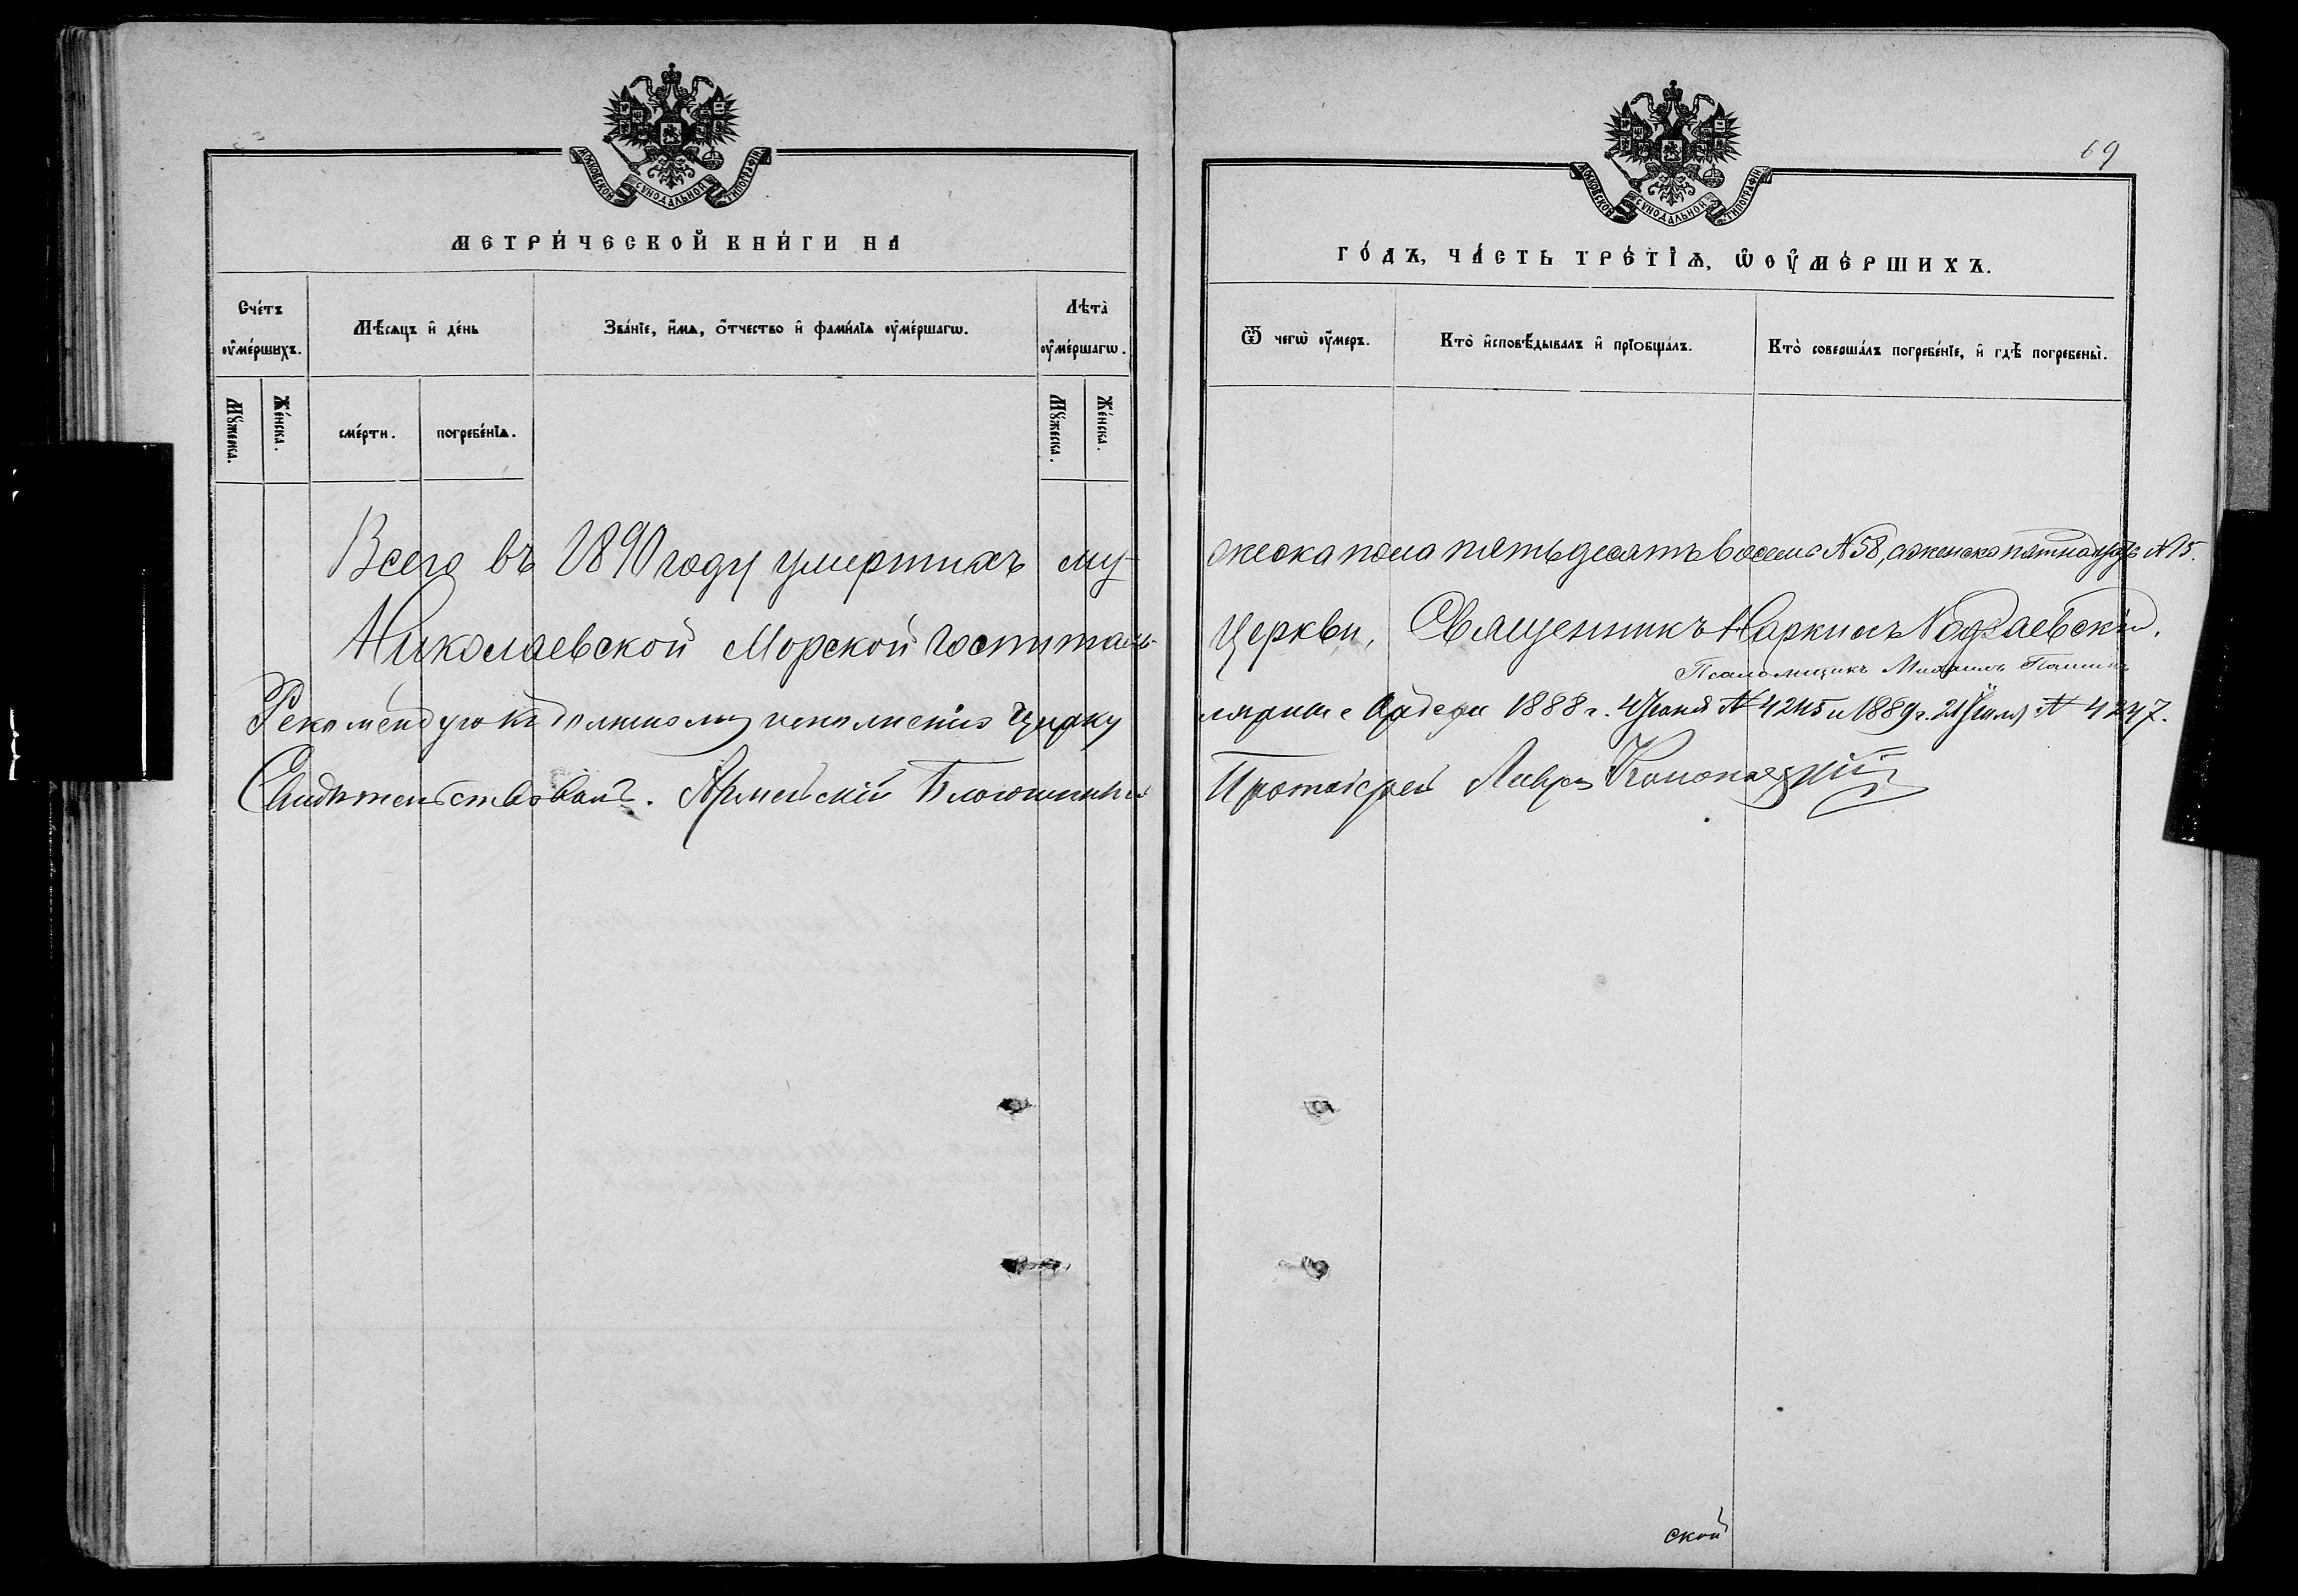 МОСКОВСКОЙ СѴНОДАЛЬНОЙ ТИПОГРАФІИ
МЕТРИ́ЧЕСКОЙ КНИ́ГИ НА
Сче́тъ оу҆ме́ршихъ.
Мѣ́сяцъ и҆ де́нь
Зва́нїе, и҆́мѧ, ѻ҆́тчество и҆ фами́лїѧ оу҆ме́ршагѡ.
Лѣта̀ оу҆ме́ршагѡ.
Мꙋ́жеска.
Же́нска.
сме́рти.
погребе́нїѧ.
Мꙋ́жеска.
Же́нска.
Всего въ 1890 году умершихъ му-
Николаевской Морской Госпиталь-
Рекомендую къ должному исполненію Цирку
Свидѣтельствовалъ. Армейскій Благочинный
69
МОСКОВСКОЙ СѴНОДАЛЬНОЙ ТИПОГРАФІИ
ГО́ДЪ, ЧА́СТЬ ТРЕ́ТЇѦ, Ѡ҆ ОУ҆МЕ́РШИХЪ.
Ѿ чегѡ̀ оу҆́меръ.
Кто̀ и҆сповѣ́дывалъ и҆ прїѡбща́лъ.
Кто̀ соверша́лъ погребе́нїе, и҆ гдѣ̀ погребены̀.
жеска пола пятьдесятъ восемь № 58, а женска пятнадцать № 15.
Церкви, Священникъ Наркисъ
Псаломщикъ Михаилъ
лярные 1888 г. 4 № 4245 и 1889 г. 21 № 4247.
Протоіерей Лавръ
ской